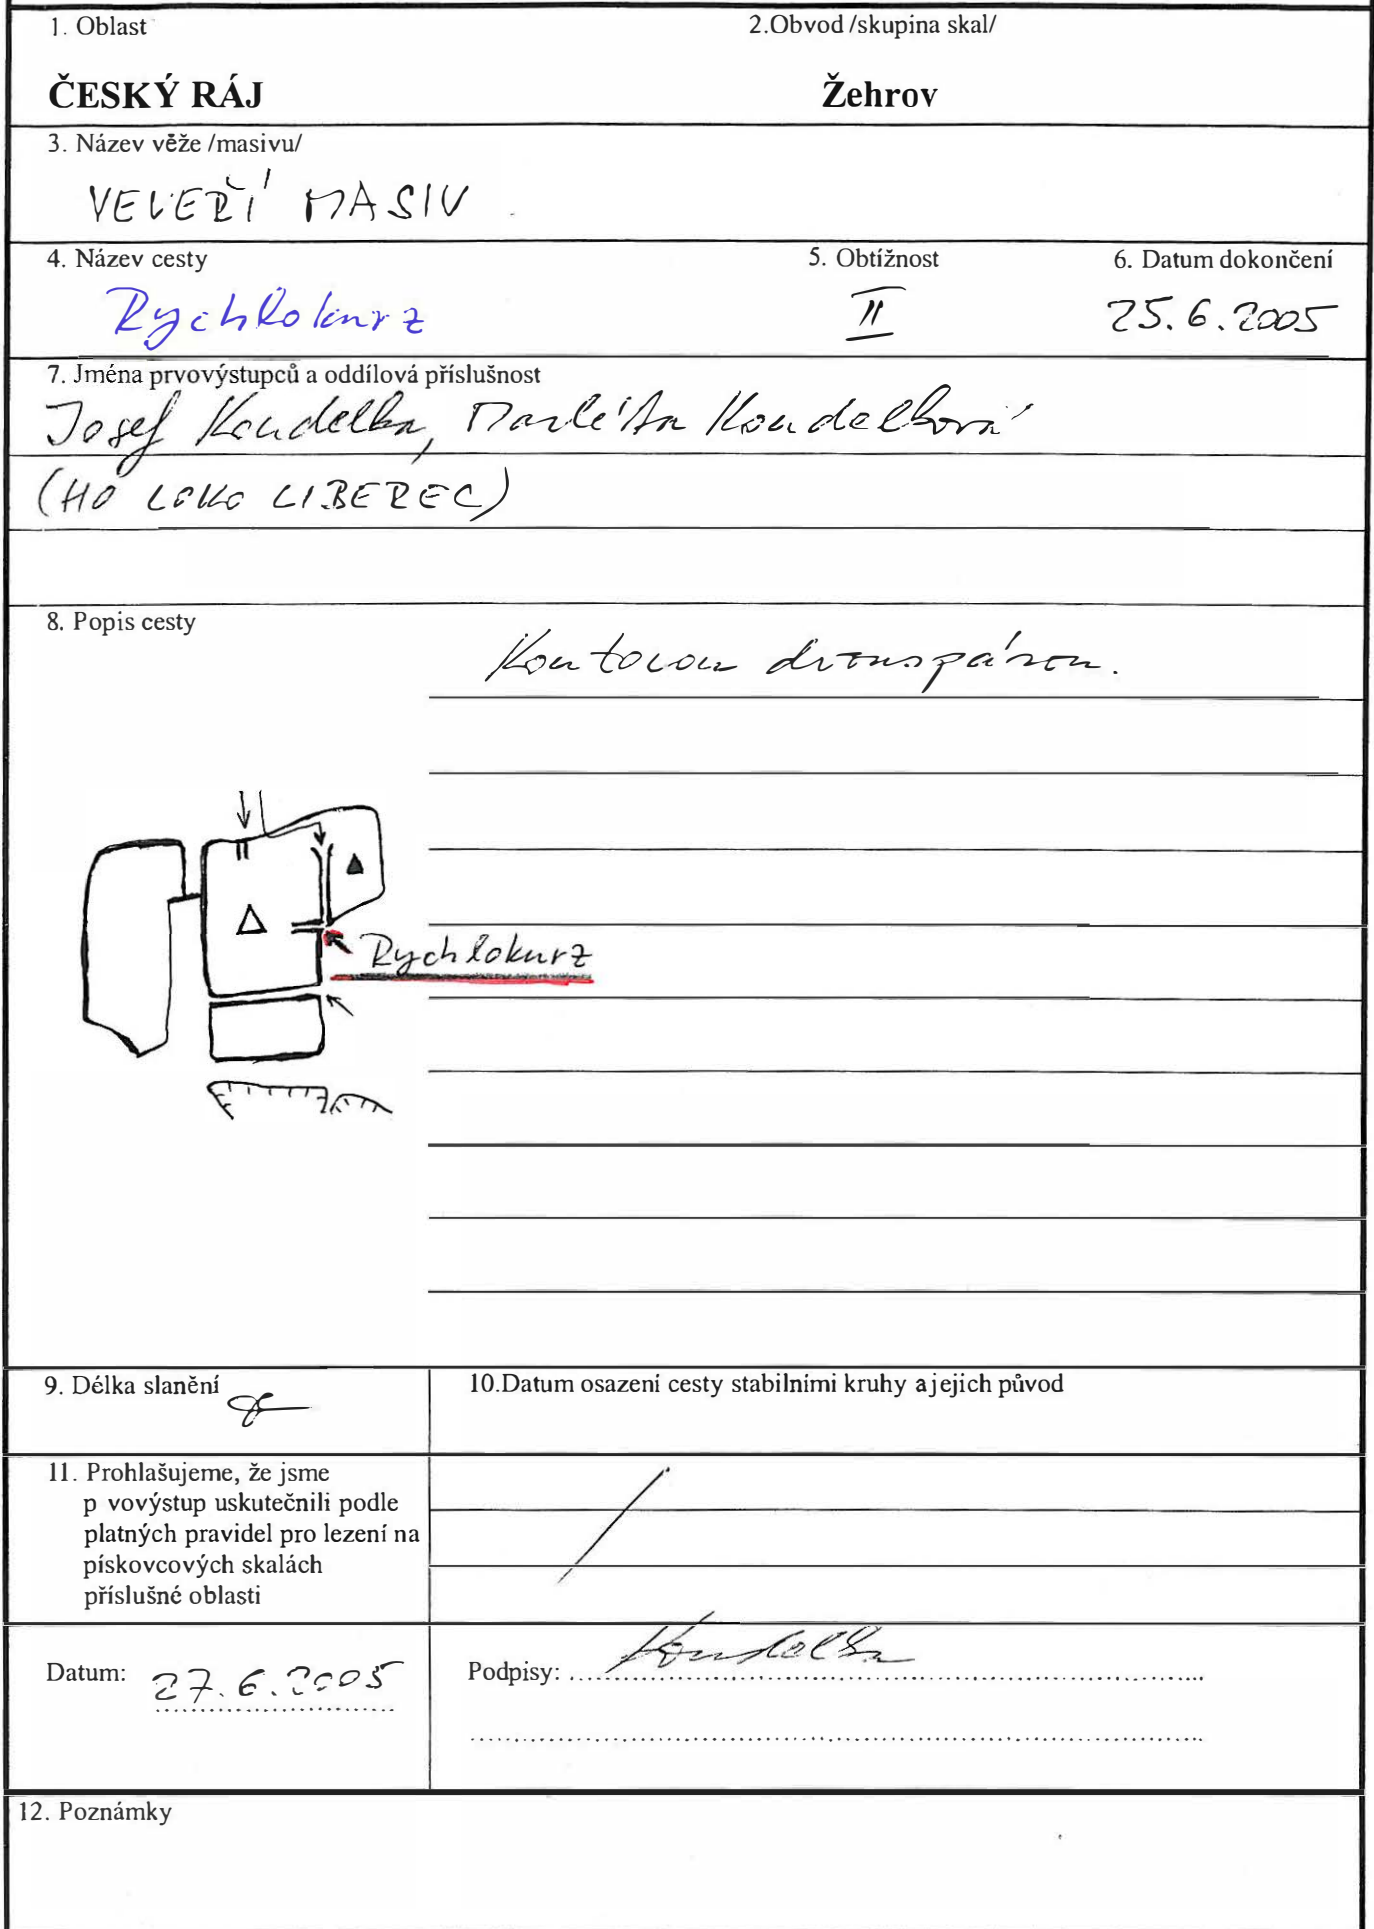 1. Oblast
2.Obvod /skupina skal/
ČESKÝ RÁJ
Žehrov
3. Název věže /masivu/
VEVEŘÍ MASIV
4. Název cesty
5. Obtížnost
6. Datum dokončení
Rychlokurz
II
25.6.2005
7. Jména prvovýstupců a oddílová příslušnost
Josef Koudelka, Markéta Koudelková
(HO LOKO LIBEREC)
8. Popis cesty
Koutovou dvouspárou.
Rychlokurz
9. Délka slanění
10.Datum osazení cesty stabilními kruhy a jejich původ
11. Prohlašujeme, že jsme
p vovýstup uskutečnili podle
platných pravidel pro lezení na
pískovcových skalách
příslušné oblasti
Datum: 27.6.2005
Podpisy: Koudelka
12. Poznámky